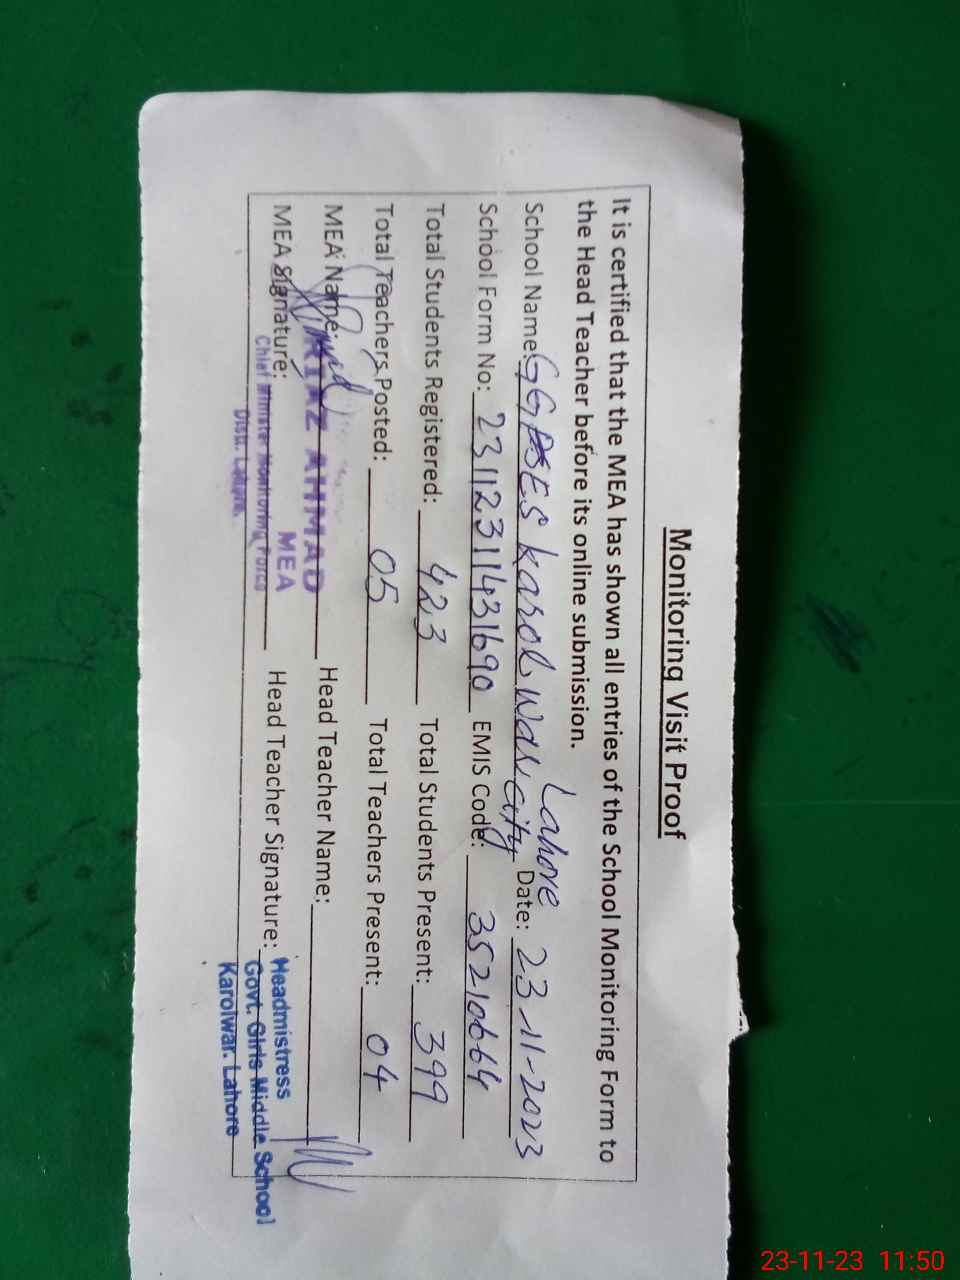 Monitoring Visit Proof
It is certified that the MEA has shown all entries of the School Monitoring Form to
the Head Teacher before its online submission.
Lahore
School Name: GGPSES Karol War City Date: 23-11-2023
School Form No: 23112311431690 EMIS Code: 35210664
Total Students Registered: 423 Total Students Present: 399
Total Teachers Posted: 05 Total Teachers Present: 04
MEA Name: RIAZ AHMAD Head Teacher Name:
MEA
MEA Signature: Chief Minister Monitoring Force Head Teacher Signature: Headmistress
Distt. Lahore. Govt. Girls Middle School
Karolwar. Lahore
23-11-23 11:50